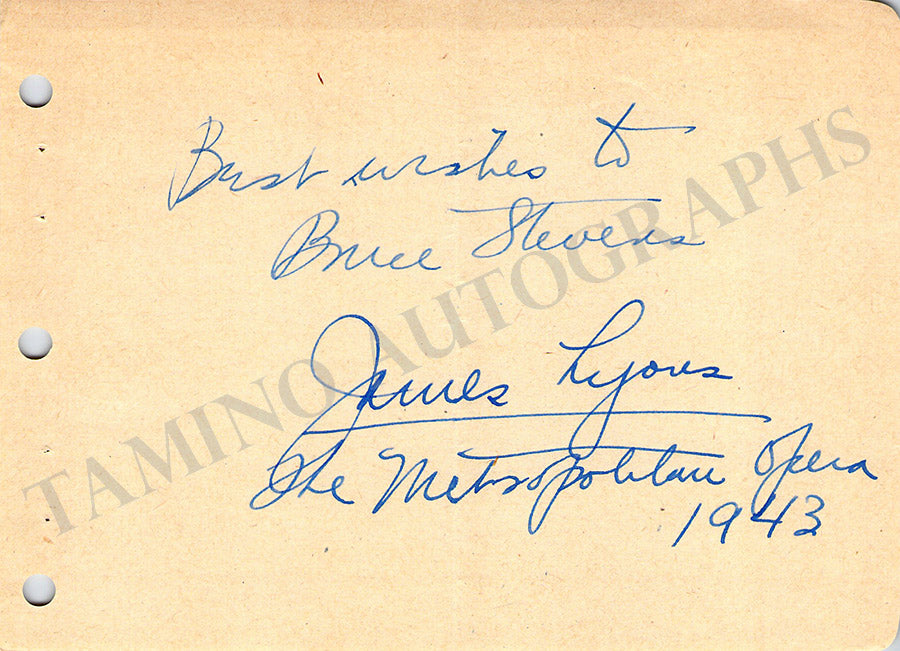 Best wishes to
Bruce Stevens
James Lyons
The Metropolitan Opera
1943
TAMINO AUTOGRAPHS